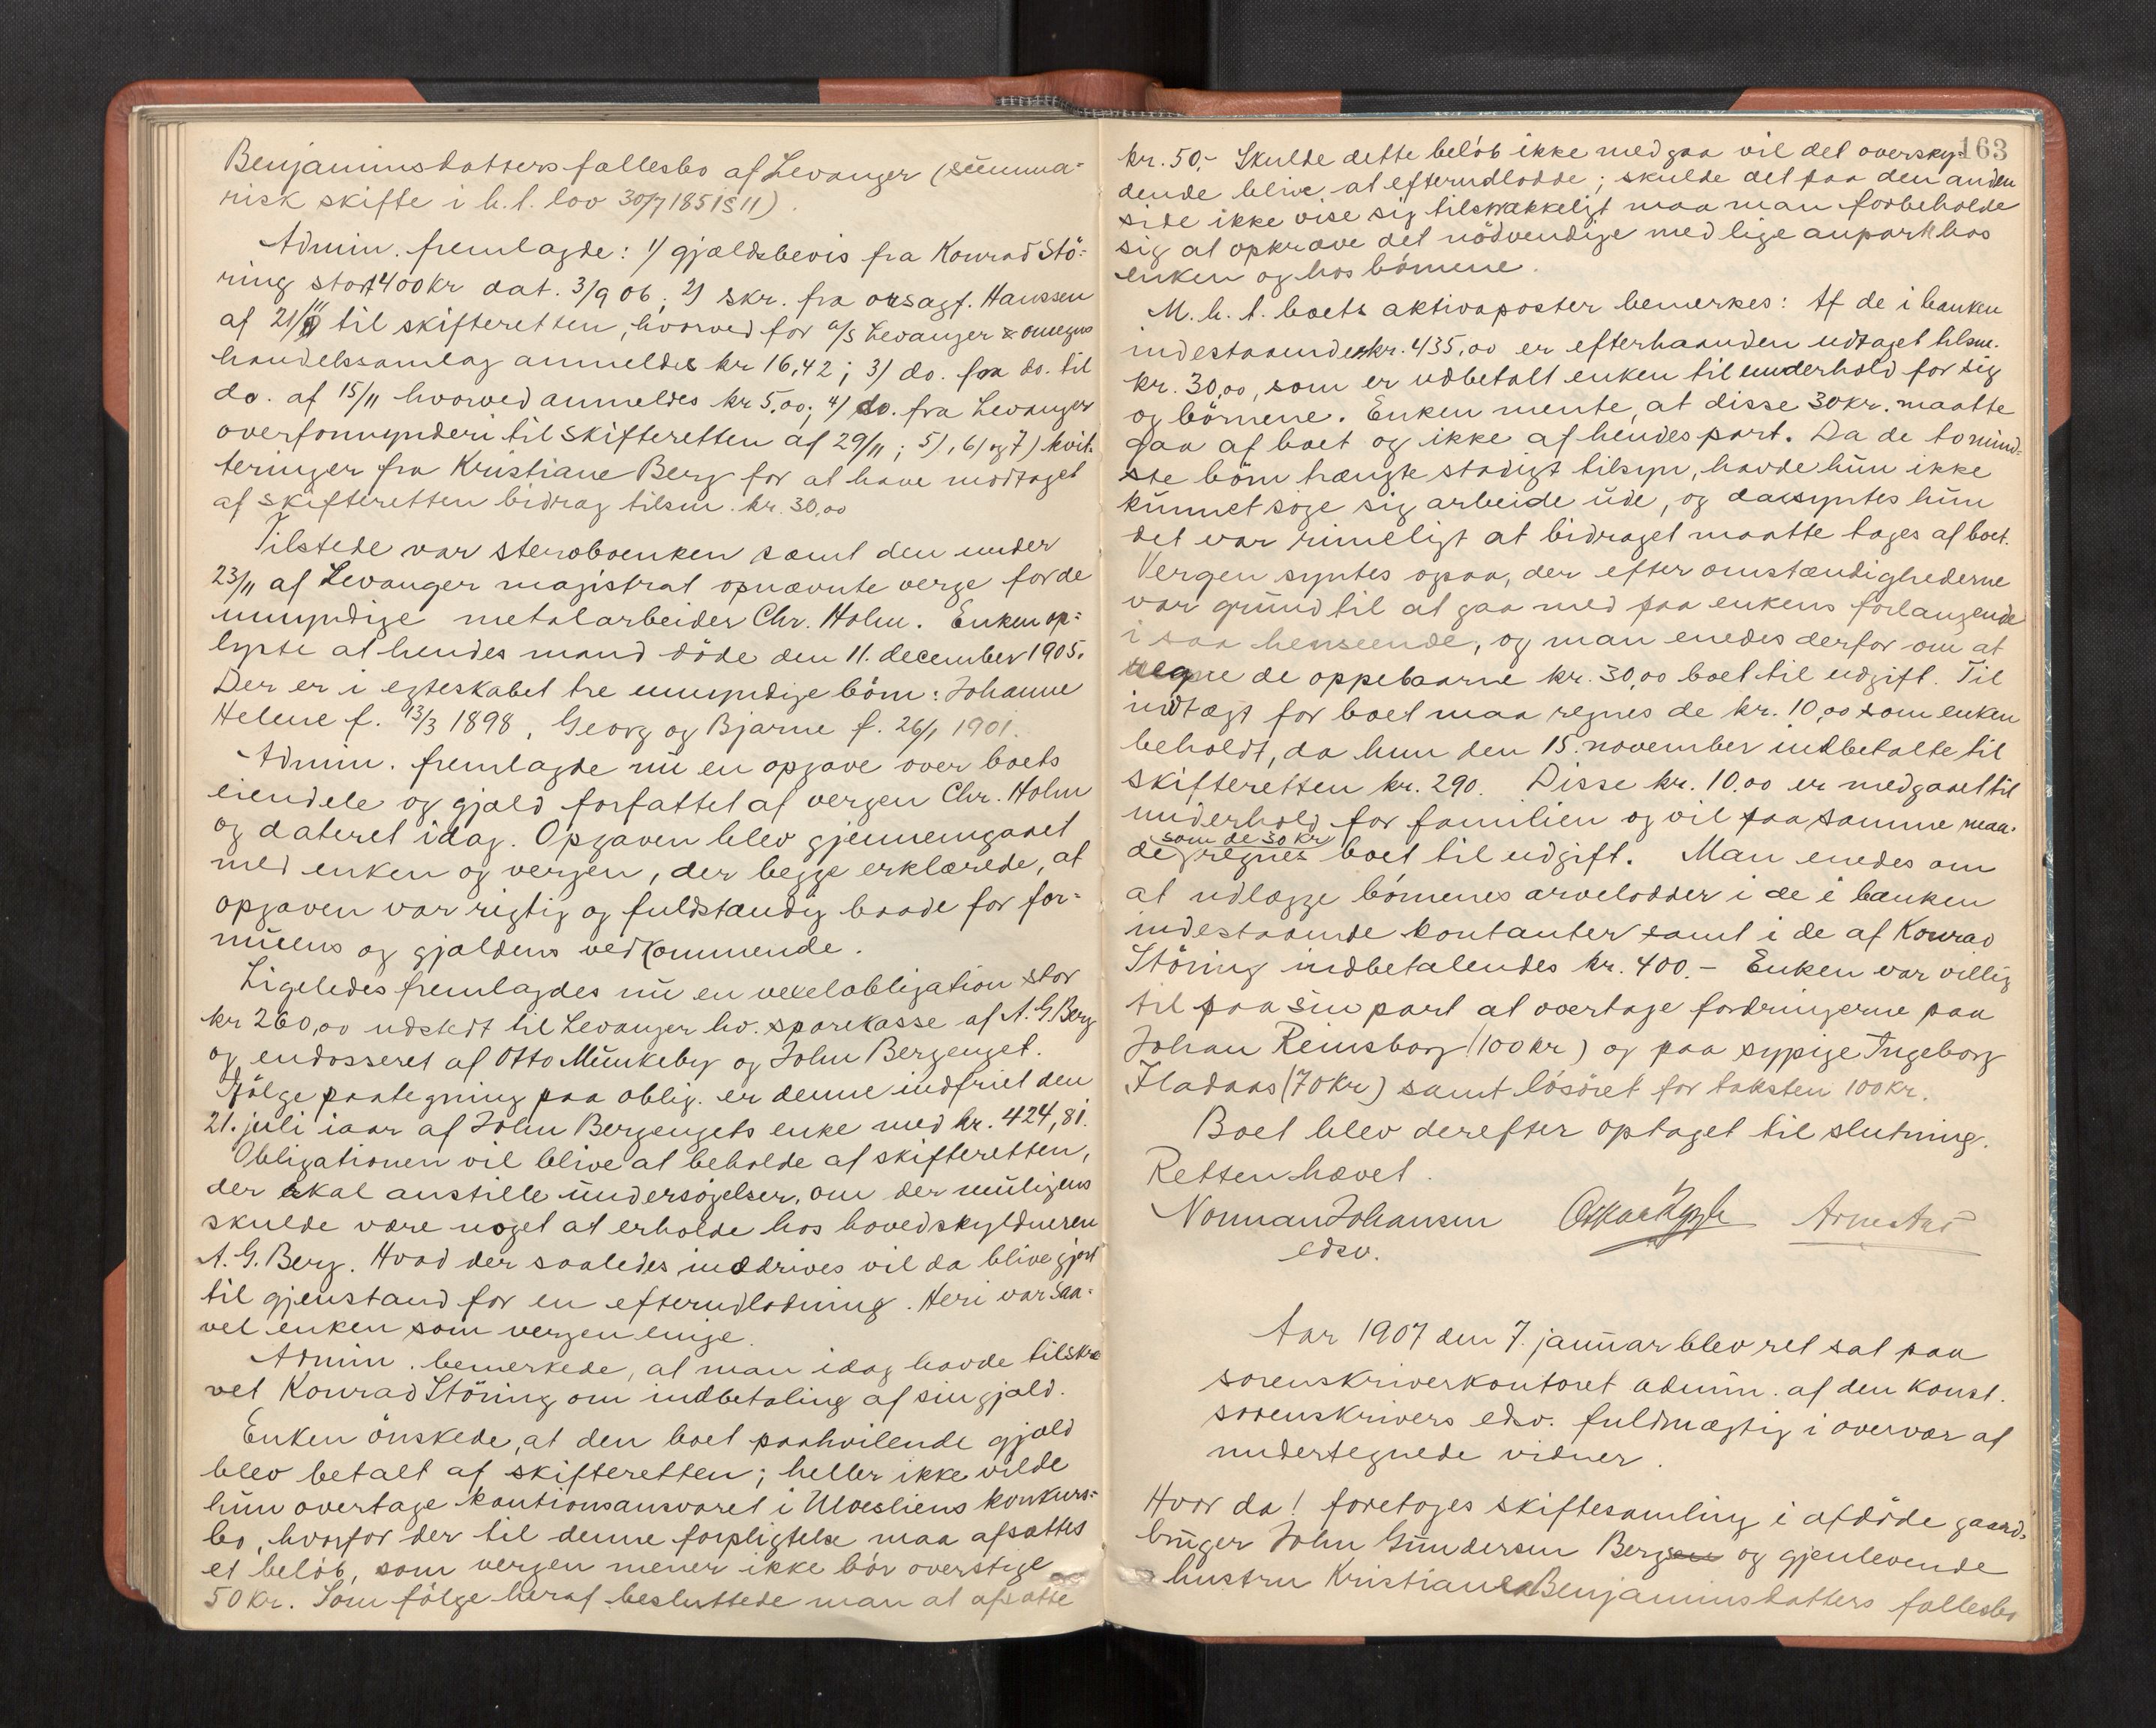 Benjaminsdatters fællesbo af Levanger (summa=
risk skifte i h.t. lov 30/7 1851 § 11).
Admin. fremlagde: 1) gjældsbevis fra Konrad Stö=
ring stort 400 kr dat. 3/9 06; 2) skr. fra orsagf. Hanssen
af 21/11 til skifteretten, hvorved for a/s Levanger & omegns
handelssamlag anmeldes kr 16,42; 3) do. fra do. til
do. af 15/11 hvorved anmeldes kr 5,00; 4) do. fra Levanger
overformynderi til skifteretten af 29/11; 5), 6) og 7) kvit-
teringer fra Kristiane Berg for at have modtaget
af skifteretten bidrag tilsm. kr. 30,00
Tilstede var stervboenken samt den under
23/11 af Levanger magistrat opnævnte verge for de
umyndige metalarbeider Chr. Holm. Enken op=
lyste at hendes mand döde den 11. december 1905.
Der er i egteskabet tre umyndige börn: Johanne
Helene f. 13/3 1898, Georg og Bjarne f. 26/1 1901.
Admin. fremlagde nu en opgave over boets
eiendele og gjæld forfattet af vergen Chr. Holm
og dateret idag. Opgaven blev gjennemgaaet
med enken og vergen, der begge erklærede, at
opgaven var rigtig og fuldstændig baade for for=
muens og gjældens vedkommende.
Ligeledes fremlagdes nu en vexelobligation stor
kr 260,00 udstedt til Levanger hv. sparekasse af A. G. Berg
og endosseret af Otto Munkeby og John Bergenget.
Ifölge paategning paa oblig. er denne indfriet den
21. juli iaar af John Bergengets enke med kr. 424,81.
Obligationen vil blive at beholde af skifteretten,
der skal anstille undersögelser, om der muligens
skulde være noget at erholde hos hovedskyldneren
A. G. Berg. Hvad der saaledes inddrives vil da blive gjort
til gjenstand for en efterudlodning. Heri var saa=
vel enken som vergen enige.
Admin. bemerkede, at man idag havde tilskre
vet Konrad Störing om indbetaling af sin gjæld.
Enken önskede, at den boet paahvilende gjæld
blev betalt af skifteretten; heller ikke vilde
hun overtage kautionsansvaret i Moesliens konkurs=
bo, hvorfor der til denne forpligtelse maa afsættes
et belöb, som vergen mener ikke bör overstige
50 kr. Som fölge heraf besluttede man at afsætte
163
kr. 50,- Skulde dette belöb ikke medgaa vil det oversky-
dende blive at efterudlodde; skulde det paa den anden
side ikke vise sig tilstrækkeligt maa man forbeholde
sig at opkræve det nödvendige med lige anpart hos
enken og hos börnene.
M. h. t. boets aktivaposter bemerkes: Af de i banken
indestaaende kr. 435,00 er efterhaanden udtaget tilsm.
kr. 30,00, som er udbetalt enken til underhold for sig
og börnene. Enken mente, at disse 30 kr. maatte
gaa af boet og ikke af hendes part. Da de to mind-
ste börn trængte stadigt tilsyn, havde hun ikke
kunnet söge sig arbeide ude, og da syntes hun
det var rimeligt at bidraget maatte tages af boet.
Vergen syntes ogsaa, der efter omstændighederne
var grund til at gaa med paa enkens forlangende
i saa henseende, og man enedes derfor om at
regne de oppebaarne kr. 30,00 boet til udgift. Til
indtægt for boet maa regnes de kr. 10,00 som enken
beholdt, da hun den 15. november indbetalte til
skifteretten kr. 290. Disse kr. 10,00 er medgaaet til
underhold for familien og vil paa samme maa-
som de 30 kr
de regnes boet til udgift. Man enedes om
at udlægge börnenes arvelodder i de i banken
indestaaende kontanter samt i de af Konrad
Störing indbetalendes kr. 400.- Enken var villig
til paa sin part at overtage fordringerne paa
Johan Reinsborg (100 kr) og paa sypige Ingeborg
Fladaas (70 kr) samt lösöret for taksten 100 kr.
Boet blev derefter optaget til slutning.
Retten hævet.
Norman Johansen
edsv.
Aar 1907 den 7. januar blev ret sat paa
sorenskriverkontoret admin. af den konst.
sorenskrivers edsv. fuldmægtig i overvær af
undertegnede vidner.
Hvor da! foretoges skiftesamling i afdöde gaard-
bruger John Gundersen Bergsen og gjenlevende
hustru Kristiane Benjaminsdatters fællesbo